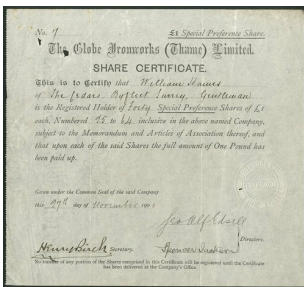 No. 7 £1 Special Preference Share.
The Globe Ironworks (Thame) Limited.
SHARE CERTIFICATE.
This is to Certify that William
of The Bagshot Surrey, Gentleman
is the Registered Holder of Forty Special Preference Shares of £1
each, Numbered 25 to 64 inclusive in the above named Company,
subject to the Memorandum and Articles of Association thereof, and
that upon each of the said Shares the full amount of One Pound has
been paid up.
Given under the Common Seal of the said Company
this 27th day of November 190
Directors.
Henry Birch Secretary. Spencer
No transfer of any portion of the Shares comprised in this Certificate will be registered until the Certificate
has been delivered at the Company's Office.